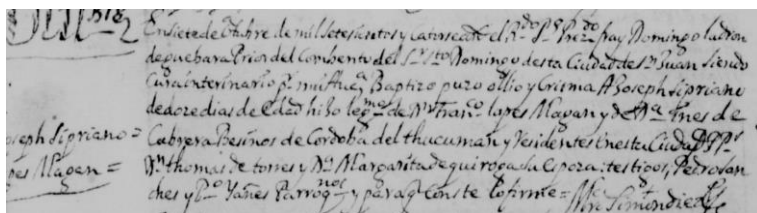 En siete de otubre de mil setesientos y catorse año el Rdo Pe Prezdo fray Domingo ladron
de guebara Prior del Combento del Sr Sto Domingo desta Ciudad de Sn Juan siendo
Cura interinario pr Baptizo puzo ollio y Crisma A Joseph Sipriano
de doze dias de edad hijo legmo de Dn Franco lapes Magan y de Da Ynes de
Joseph Sipriano =
Cabrera Besinos de Cordoba del thucuman y Residentes en esta Ciudad Ps
pes Magan =
Dn thomas de torres y Da Margarita de quiroga su espoza: testigos, Pedro San
ches y Po Yañes Parroqnos y para q Conste lo firme = Simon diez